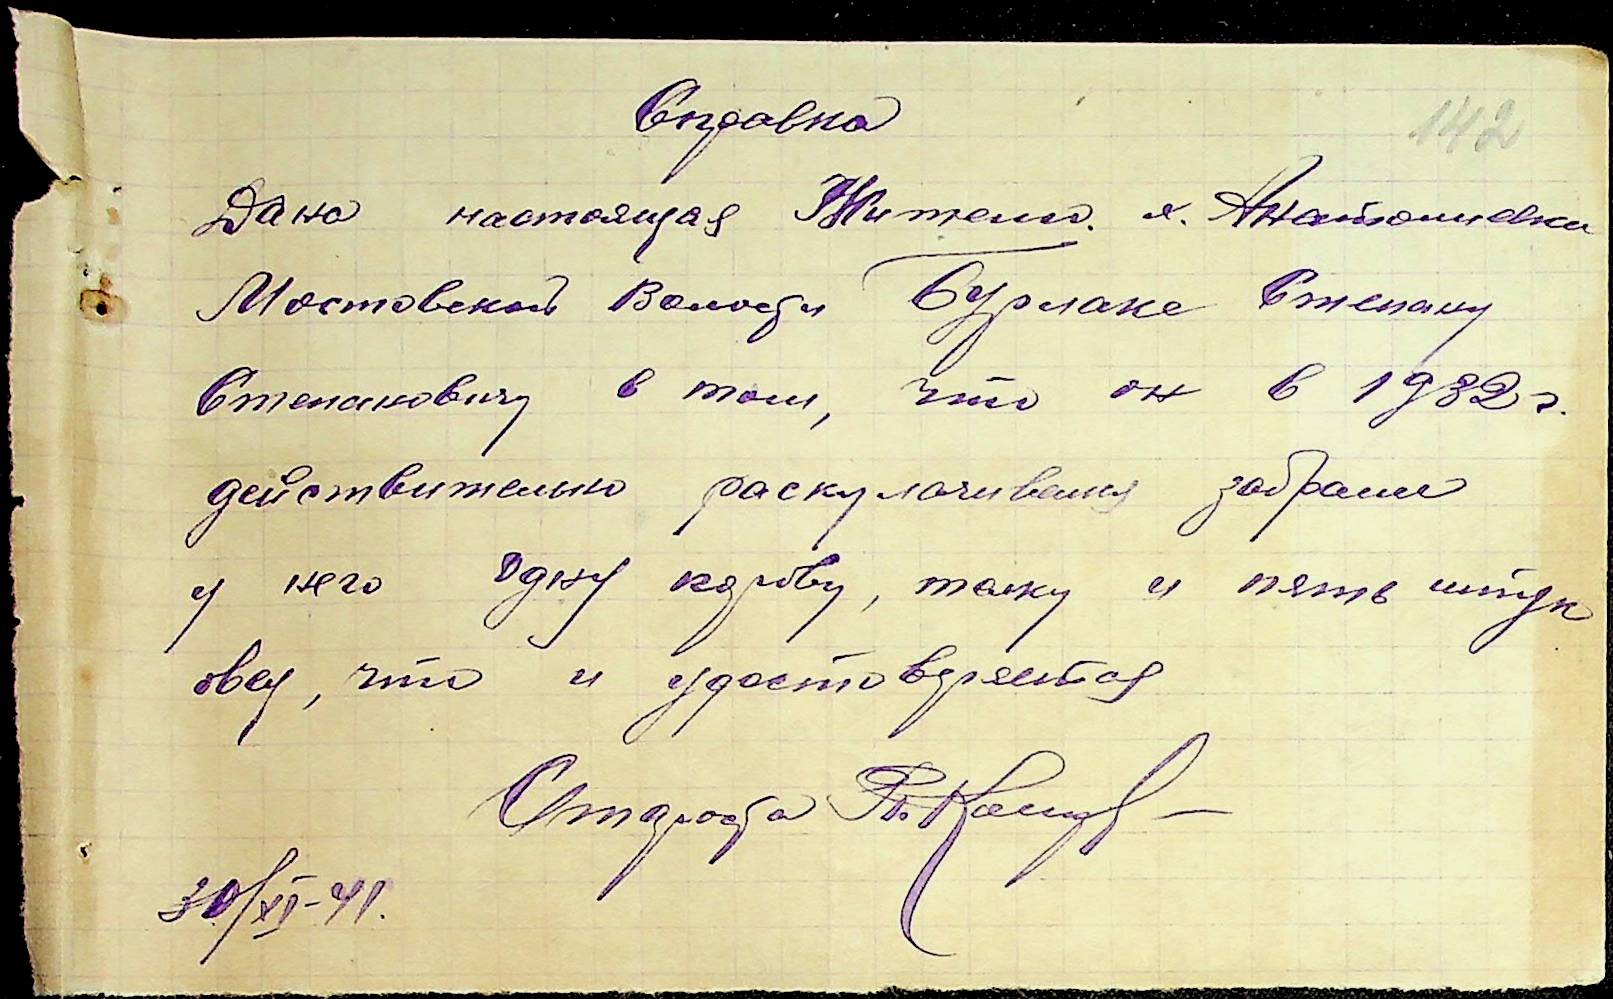 142
Справка
Дана настоящая Жителю. х. Анатолиевки
Мостовской Волости Бурлаке Степану
Степановичу в том, что он в 1932 г.
действительно раскулачивался забрали
у него одну корову, телку и пять штук
овец, что и удостоверяется
Староста
30/XI-41.